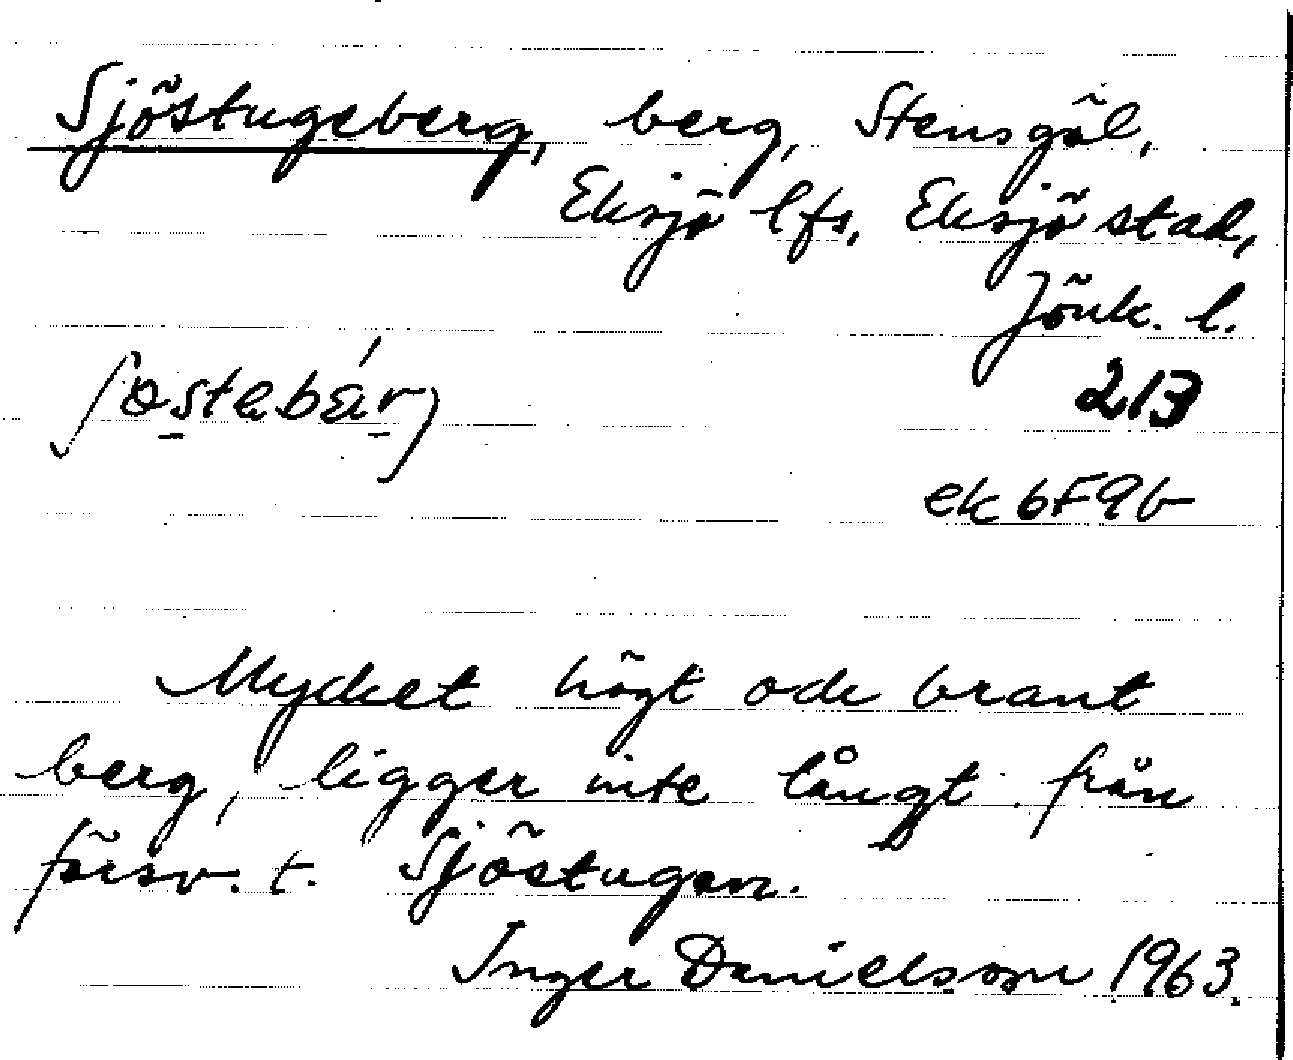 Sjöstugeberg, berg, Stensgöl,
Eksjö lfs, Eksjö stad,
Jönk. l.
213
ek 6F9b
Mycket högt och brant
berg, ligger inte långt från
försv. t. Sjöstugan.
Inger Danielsson 1963.